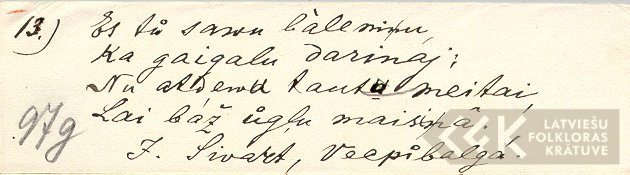 13.) Es tů sawu bàleniņu,
Ka gaigalu darinaj;
Nu atdewu tautu meitai,
Lai báž ůgļu maisiņâ.
979
J. Sivart, Vecpĩbalgá.
LATVIEŠU
FOLKLORAS
KRĀTUVE